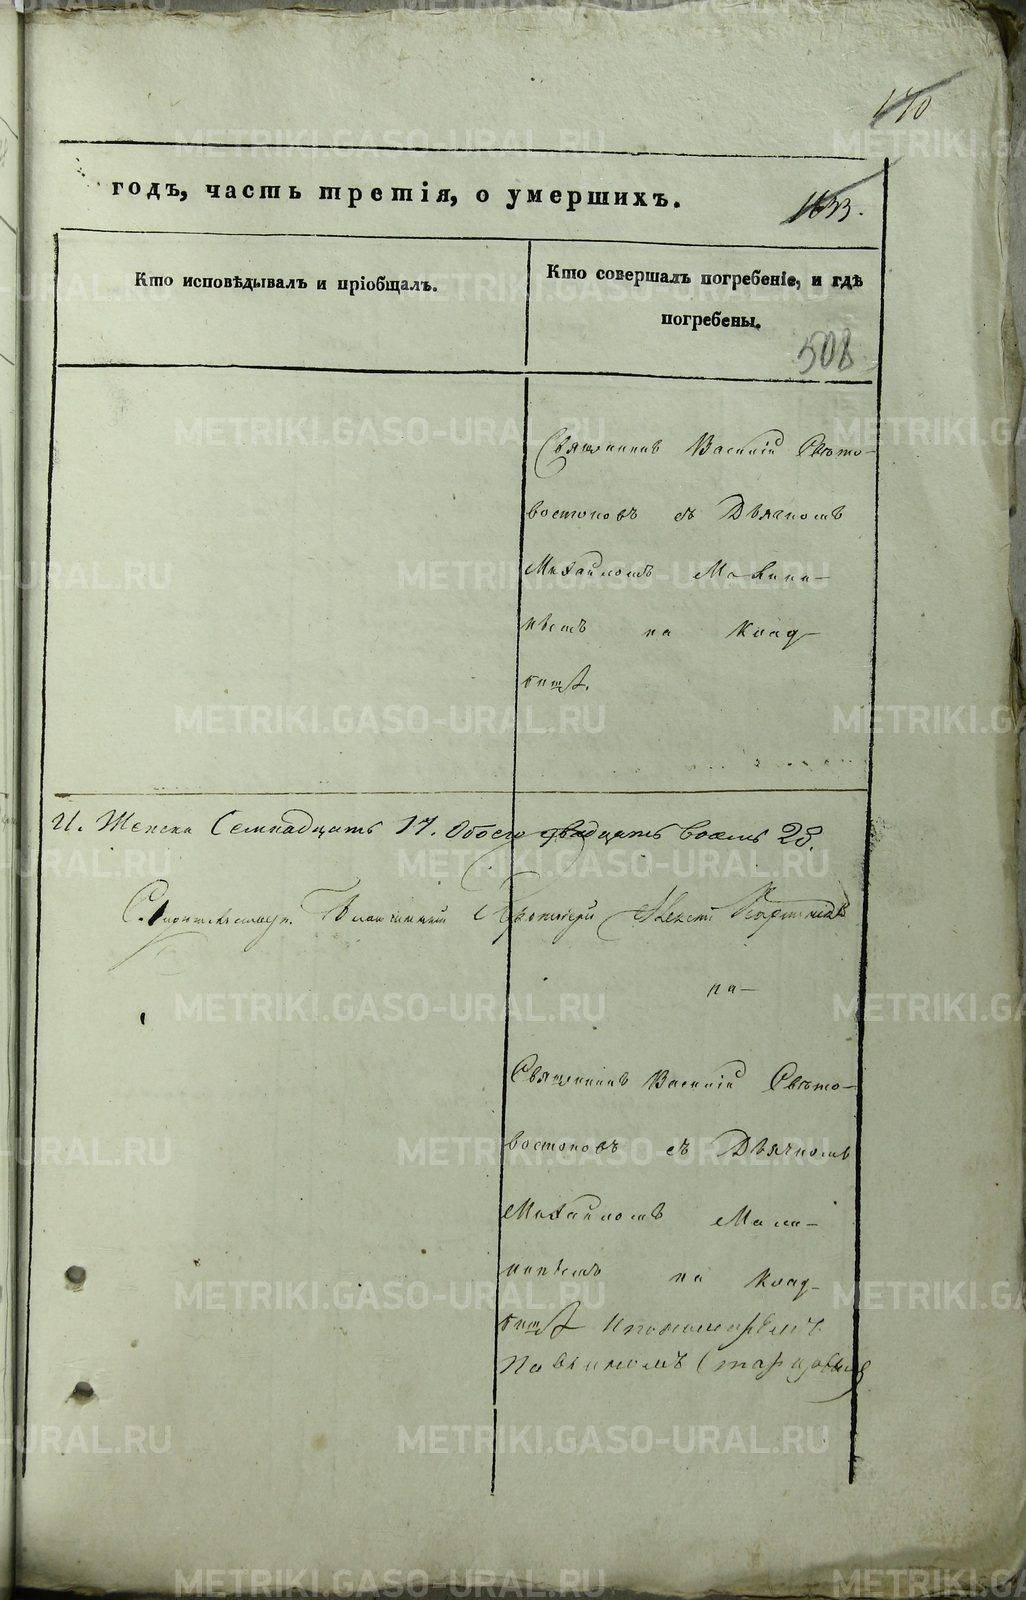 170
годъ, часть третія, о умершихъ.
1633.
Кто исповѣдывалъ и пріобщалъ.
Кто совершалъ погребеніе, и гдѣ
погребены.
508
Священникъ Василій Свѣто-
востоковъ съ Дьячкомъ
Михаиломъ Мали-
нымъ на клад-
бищѣ.
И. Женска Семнадцать 17. Обоего двадцать восемь 28.
Протоіерей Алексѣй
на-
Священникъ Василій Свѣто-
востоковъ съ Дьячкомъ
Михаиломъ Мали-
нинымъ на клад-
бищѣ и пономаремъ
Павлиномъ
METRIKI.GASO-URAL.RU